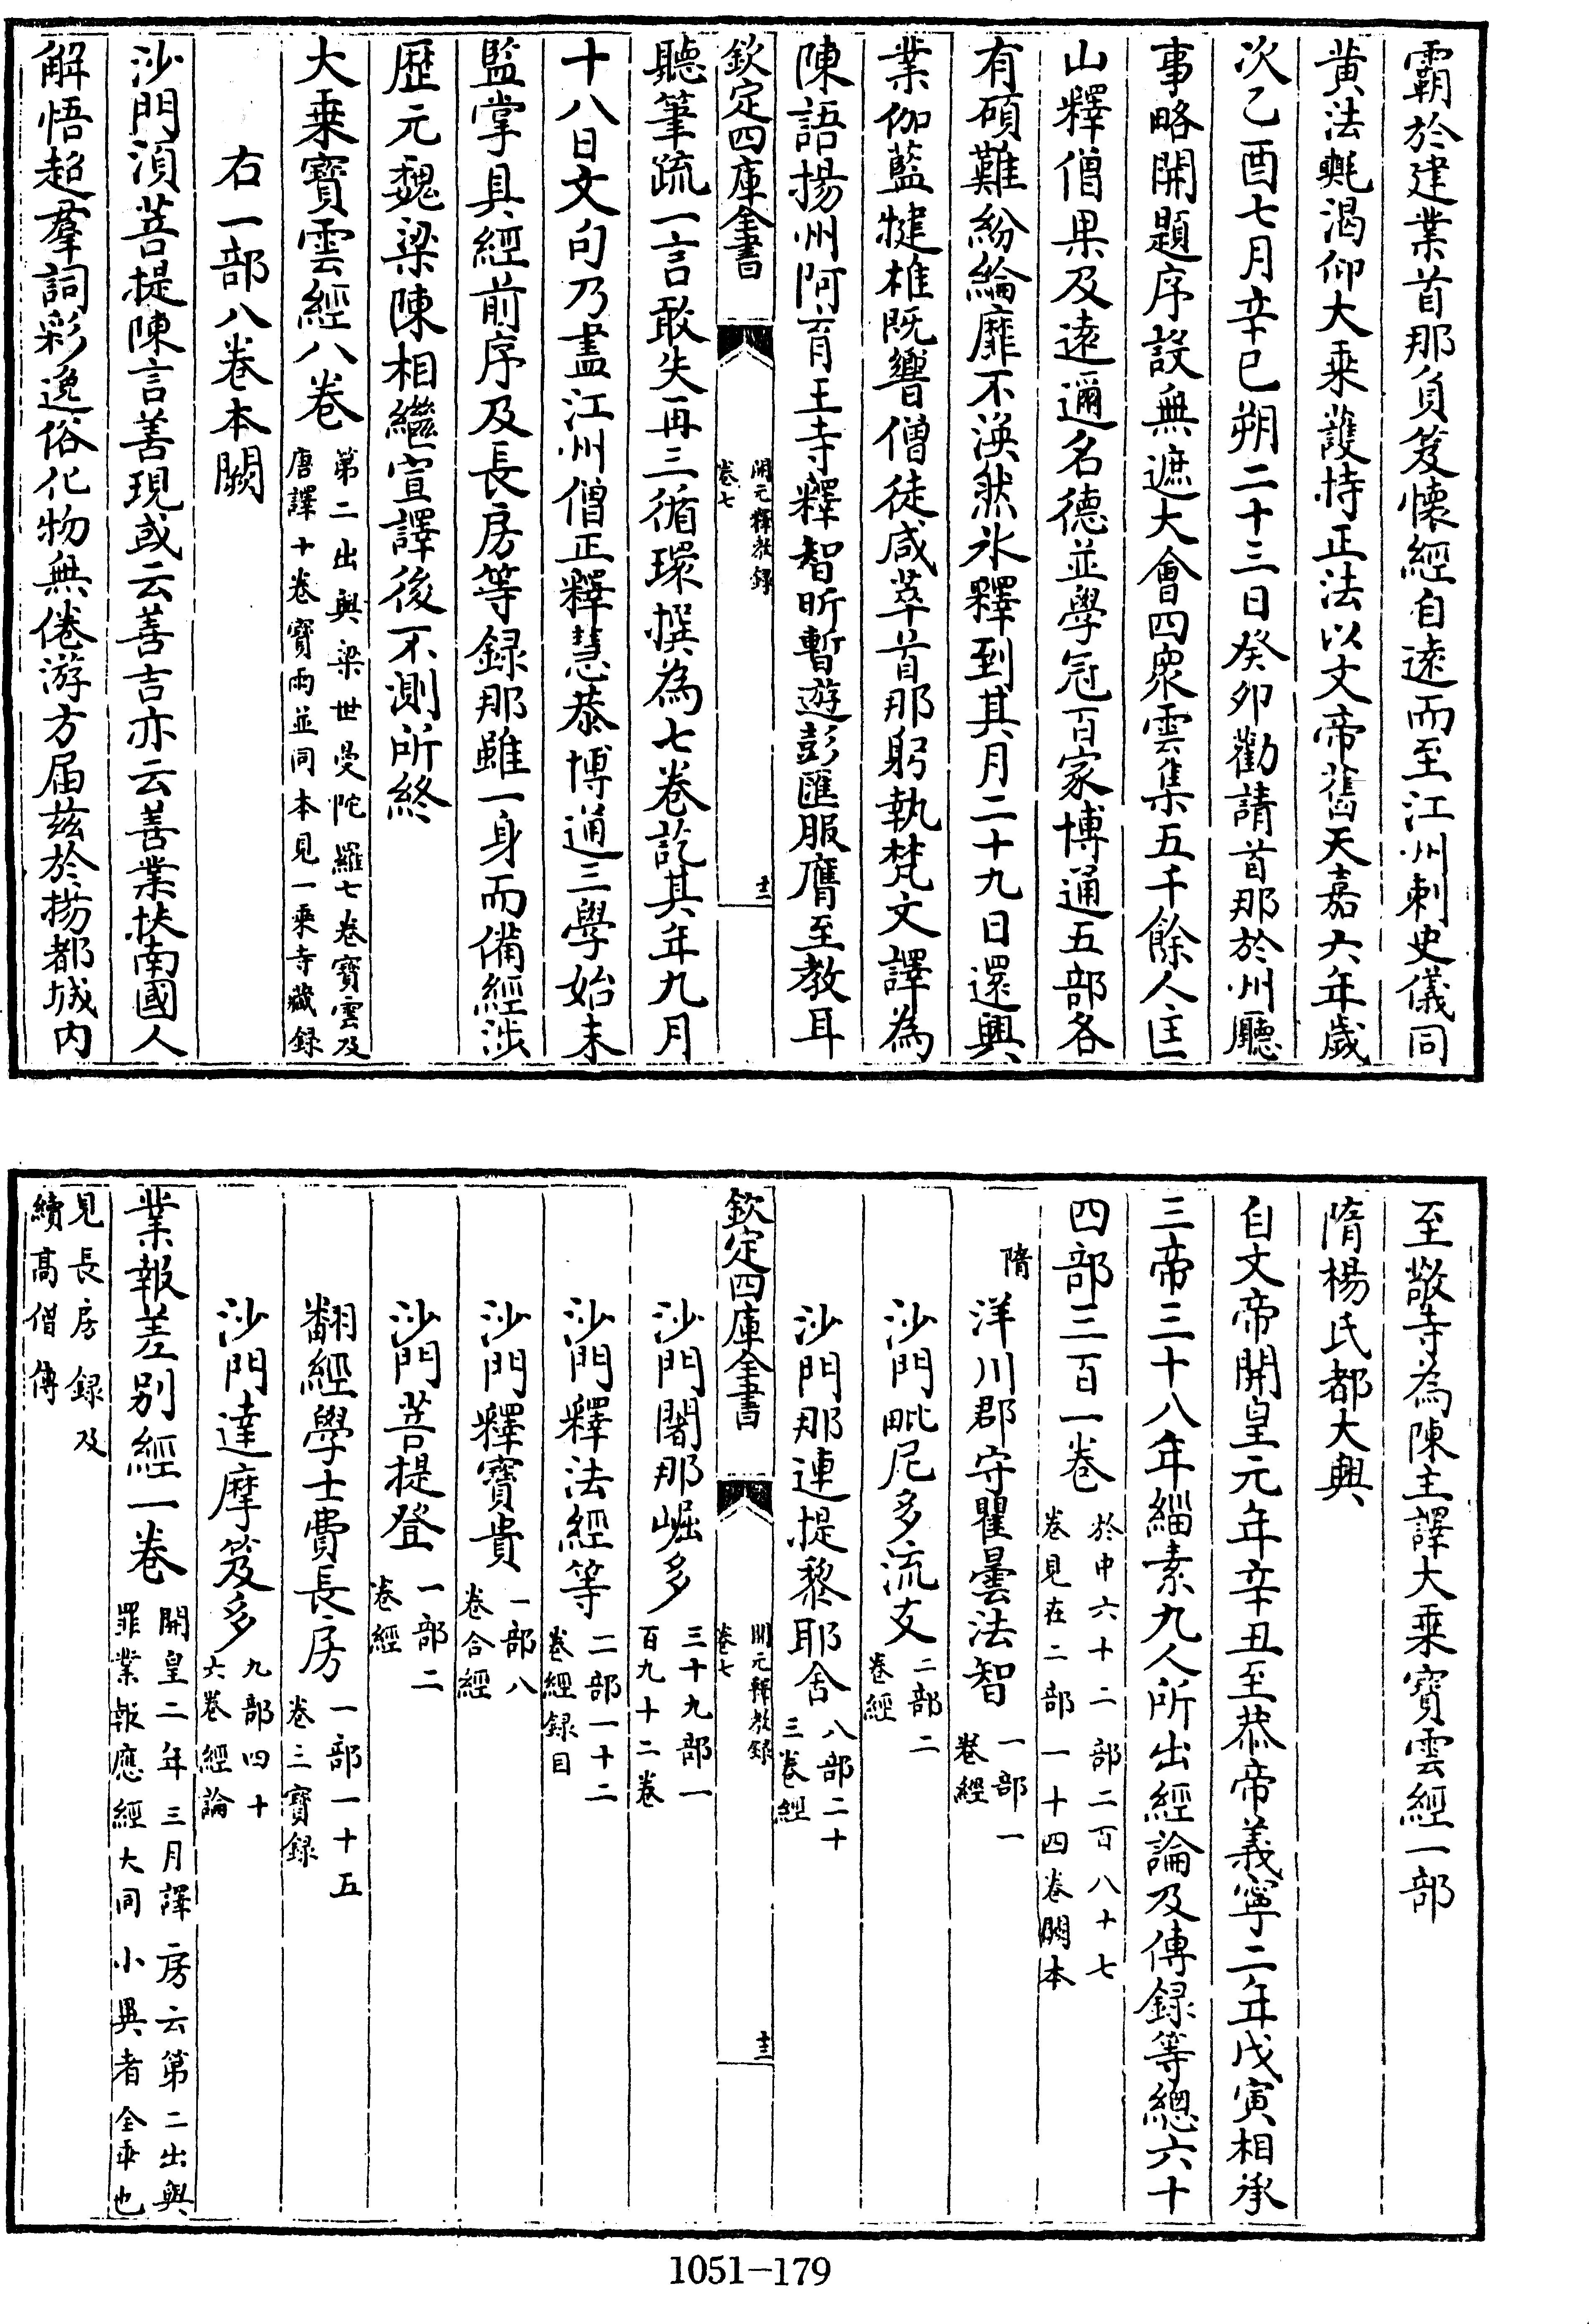 霸於建業首那負笈懷經自遠而至江州刺史儀同
黄法𣰰渴仰大乘䕶持正法以文帝舊天嘉六年歲
次乙酉七月辛巳朔二十三日癸卯勸請首那於州廳
事略開題序設無遮大會四衆雲集五千餘人匡
山釋僧果及遠邇名德並學冠百家博通五部各
有碩難紛綸靡不渙然氷釋到其月二十九日還興
業伽藍犍椎既響僧徒咸萃首那躬執梵文譯為
陳語揚州阿育王寺釋智昕暫遊彭匯服膺至教耳
欽定四庫全書
開元釋教録
卷七
十二
聽筆疏一言敢失再三循環撰為七卷訖其年九月
十八日文句乃盡江州僧正釋慧恭博通三學始末
監掌具經前序及長房等録那雖一身而備經涉
歴元魏梁陳相繼宣譯後不測所終
大乗寶雲經八卷
第二出與梁世曼陀羅七卷寶雲及
唐譯十卷寶雨並同本見一乘寺藏録
右一部八卷本闕
沙門湏菩提陳言善現或云善吉亦云善業扶南國人
解悟超羣詞彩逸俗化物無倦游方届兹於揚都城内
至敬寺為陳主譯大乘寶雲經一部
隋楊氏都大興
自文帝開皇元年辛丑至恭帝義寧二年戊寅相承
三帝三十八年緇素九人所出經論及傳録等總六十
四部三百一卷
於中六十二部二百八十七
卷見在二部一十四卷闕本
隋
洋川郡守瞿曇法智
一部一
卷經
沙門毗尼多流支
二部二
卷經
沙門那連提黎耶舍
八部二十
三卷經
欽定四庫全書
開元釋教録
卷七
十三
沙門闍那崛多
三十九部一
百九十二卷
沙門釋法經等
二部一十二
卷經録目
沙門釋寶貴
一部八
卷合經
沙門菩提登
一部二
卷經
翻經學士費長房
一部一十五
卷三寶録
沙門達摩笈多
九部四十
六卷經論
業報差别經一卷
開皇二年三月譯房云第二出與
罪業報應經大同小異者全乖也
見長房録及
續高僧傳
1051-179